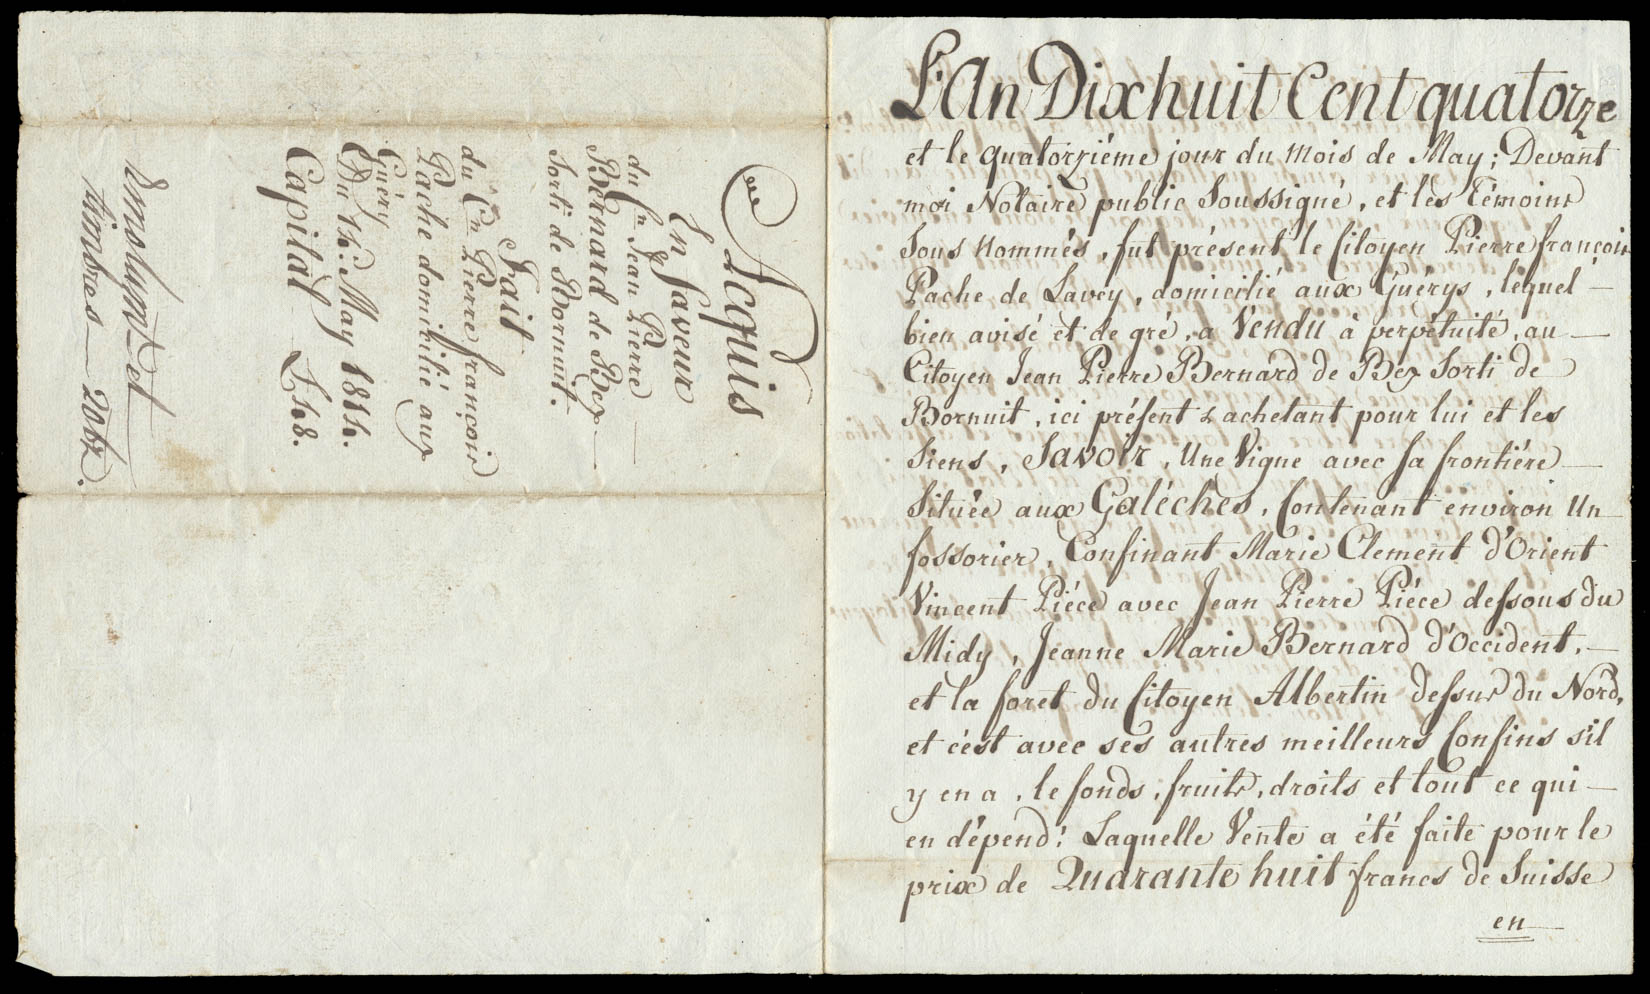 Acquis
En faveur
du Cn. Jean Pierre
Bernard de Bex
Sorti de Bornuit.
Fait
du Cn. Pierre françois
Pache domicilié aux
Guérys
Du 14. May 1814.
Capital F. 48.
Emolumt. et
timbres 20 bz.
L'An Dixhuit Cent quatorze
et le quatorziéme jour du mois de May; Devant
moi Notaire public Soussigné, et les Témoins
Sous nommés, fut présent le Citoyen Pierre françois
Pache de Lavey, domicilié aux Guérys, lequel
bien avisé et de gré, a Vendu à perpétuité, au
Citoyen Jean Pierre Bernard de Bex Sorti de
Bornuit, ici présent & achetant pour lui et les
Siens, Savoir, Une Vigne avec sa frontiére
Située aux Galéches, Contenant environ Un
fossorier, Confinant Marie Clement d'Orient
Vincent Piéce avec Jean Pierre Piéce dessous du
Midy, Jeanne Marie Bernard d'Occident,
et la foret du Citoyen Albertin dessus du Nord,
et c'est avec ses autres meilleurs Confins s'il
y en a, le fonds, fruits, droits et tout ce qui
en dépend: Laquelle Vente a été faite pour le
prix de Quarante huit francs de Suisse
en